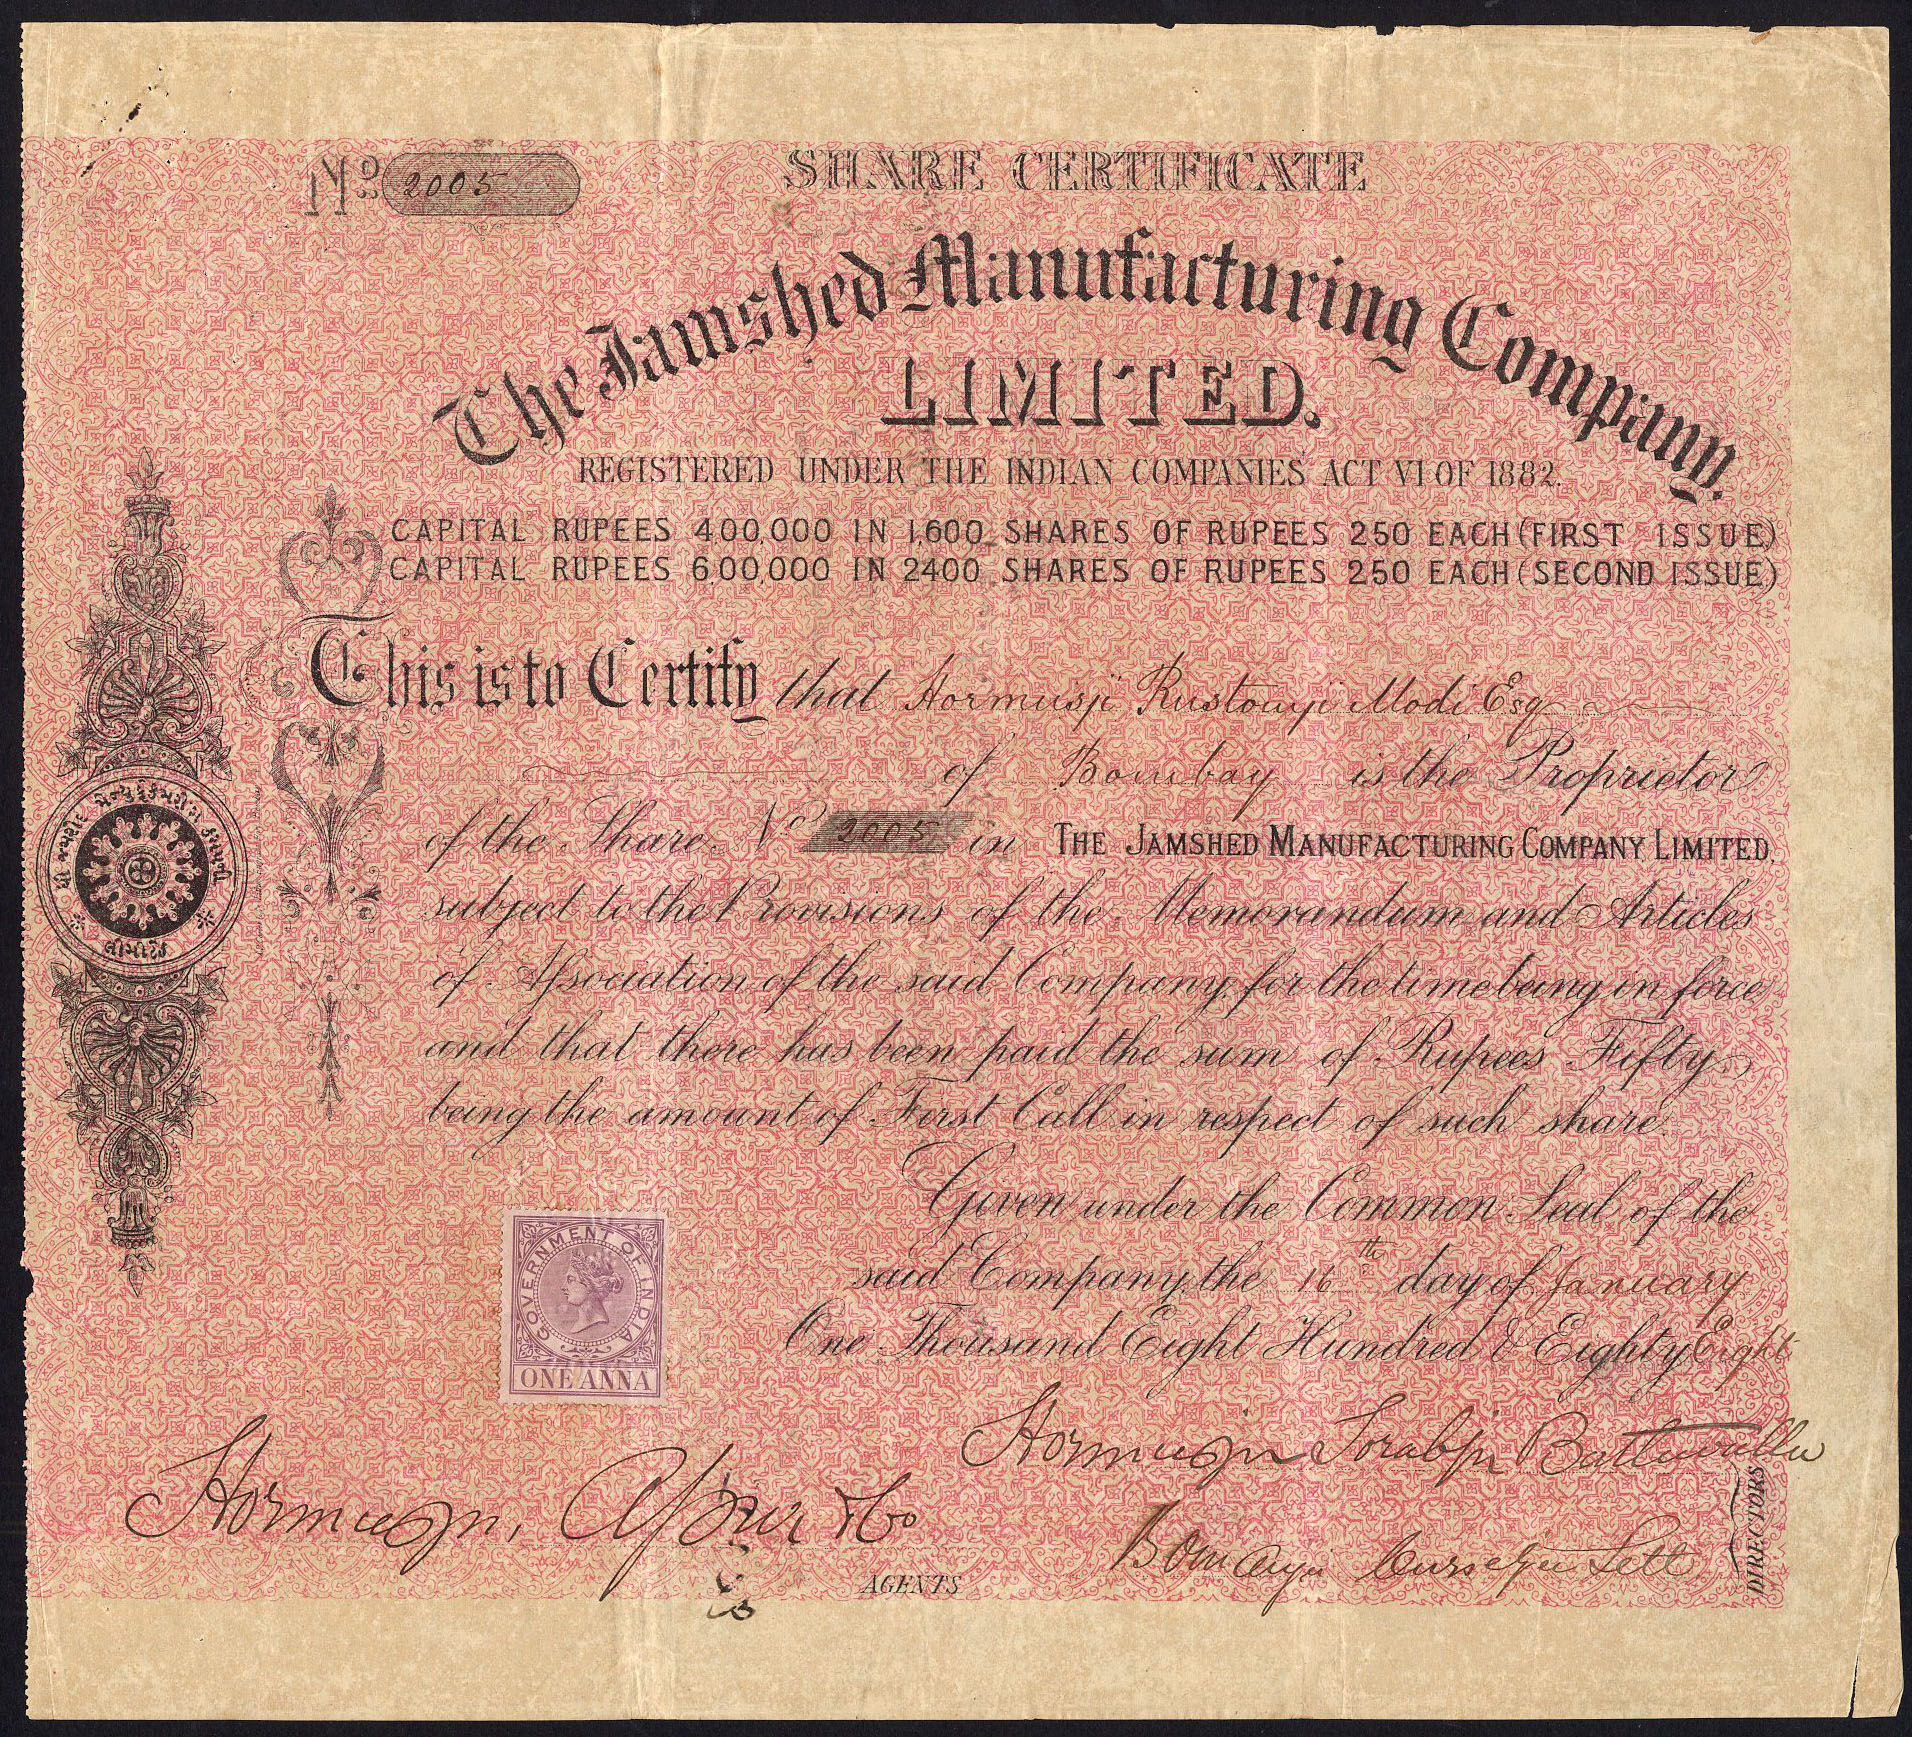 SHARE CERTIFICATE
No 2005
The Jamshed Manufacturing Company.
LIMITED.
REGISTERED UNDER THE INDIAN COMPANIES ACT VI OF 1882.
CAPITAL RUPEES 400,000 IN 1,600 SHARES OF RUPEES 250 EACH (FIRST ISSUE)
CAPITAL RUPEES 600,000 IN 2400 SHARES OF RUPEES 250 EACH (SECOND ISSUE)
This is to Certify that Hormusji Rustomji Modi Esq
of Bombay is the Proprietor
of the Share No 2005 in THE JAMSHED MANUFACTURING COMPANY LIMITED,
subject to the Provisions of the Memorandum and Articles
of Association of the said Company, for the time being in force
and that there has been paid the sum of Rupees Fifty
being the amount of First Call in respect of such share
Given under the Common Seal of the
said Company, the 16th day of January
One Thousand Eight Hundred & Eighty Eight
GOVERNMENT OF INDIA
ONE ANNA
Hormusji Sorabji Batliwalla
Hormusji, & Co
Bomanji Cursetji Sett
DIRECTORS
AGENTS
ધી જમશેદ મેન્યુફેકચરીંગ કમપની
લીમીટેડ